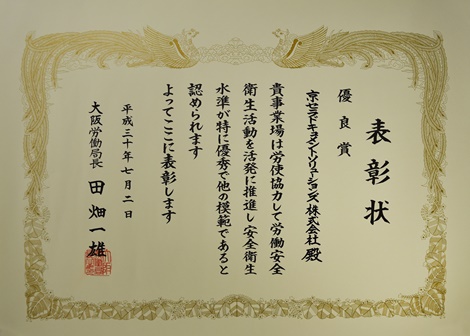 表彰状
優良賞
京セラドキュメントソリューションズ株式会社殿
貴事業場は労使協力して労働安全
衛生活動を活発に推進し安全衛生
水準が特に優秀で他の模範であると
認められます
よってここに表彰します
平成三十年七月二日
大阪労働局長 田畑一雄